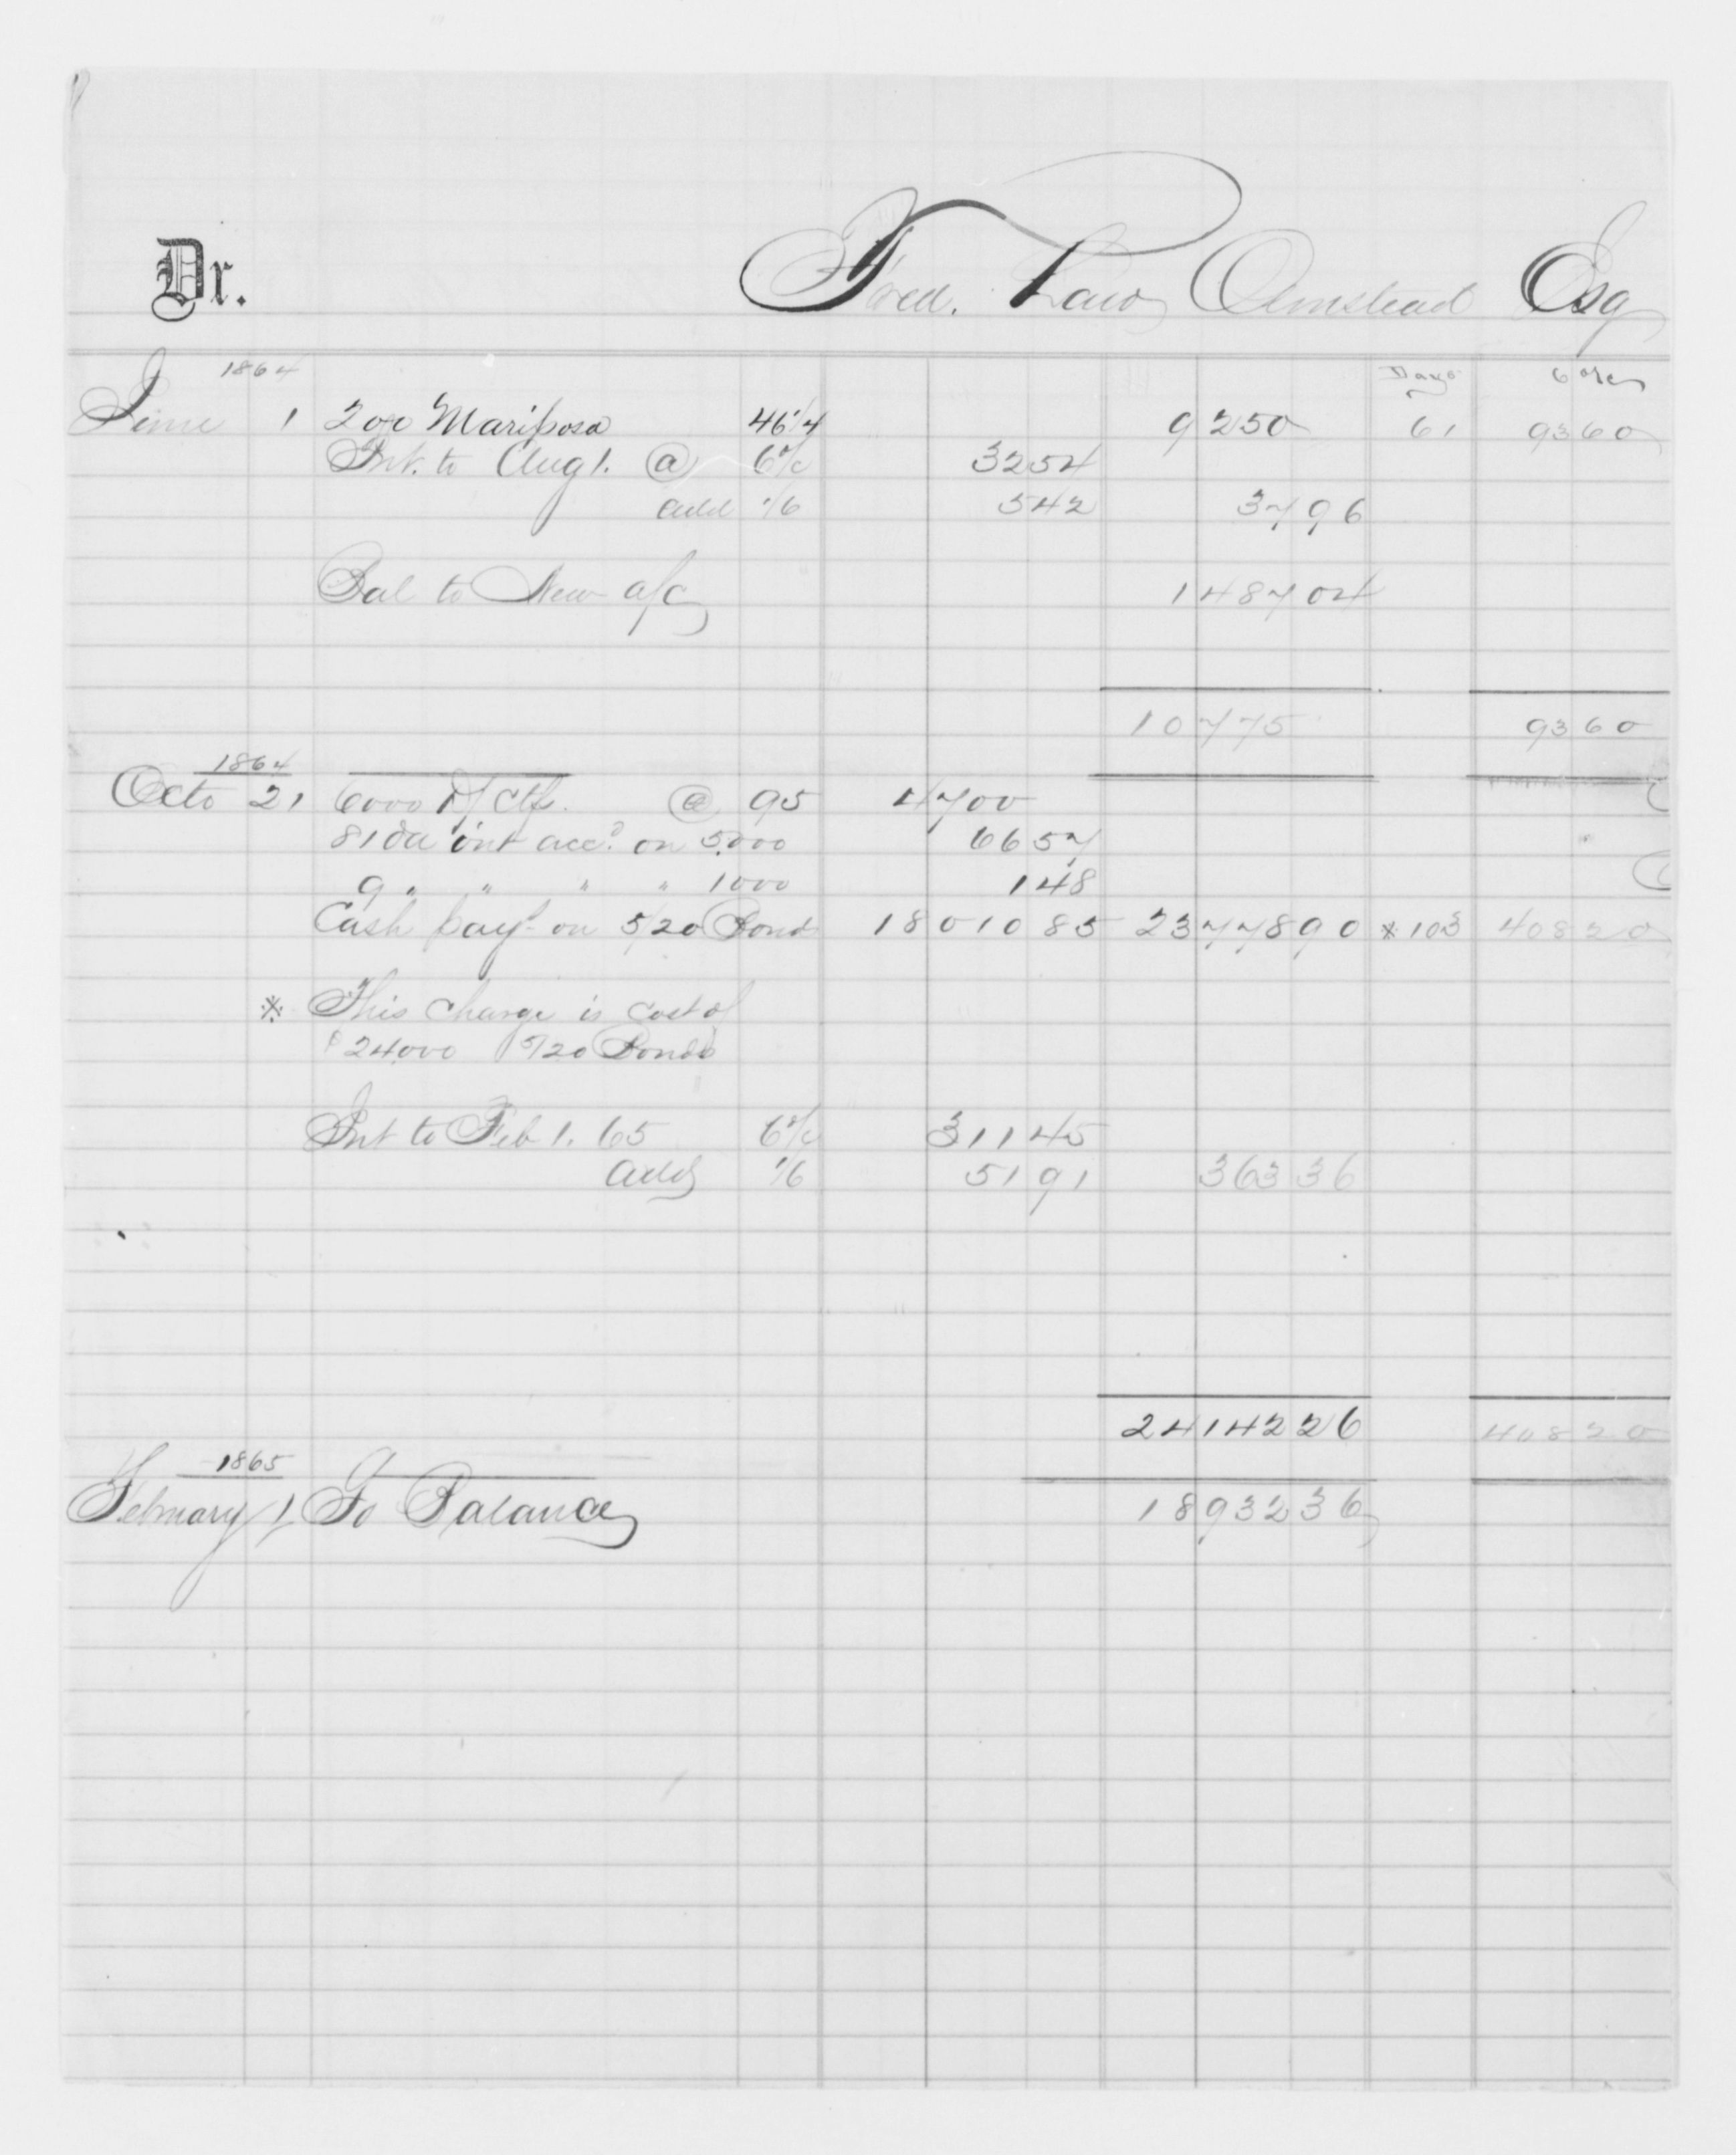 Dr. Fred. Law Olmstead Esq
1864 Days 6 %
June 1 200 Mariposa 46 1/4 9250 61 9360
Int. to Aug 1. @ 6% 3254
add 1/6 542 3796
Bal to New a/c 148704
10775 9360
1864
Octo 21 6000 Ctfs. @ 95 4700
81 da int accd on 5.000 6657
9 " " " " 1000 148
Cash payt on 5/20 Bonds 1801085 2377890 * 103 40820
* This charge is cost of
$24.000 5/20 Bonds
Int to Feb 1. 65 6% 31145
add 1/6 5191 36336
2414226 40820
1865
February 1 To Balance 1893236